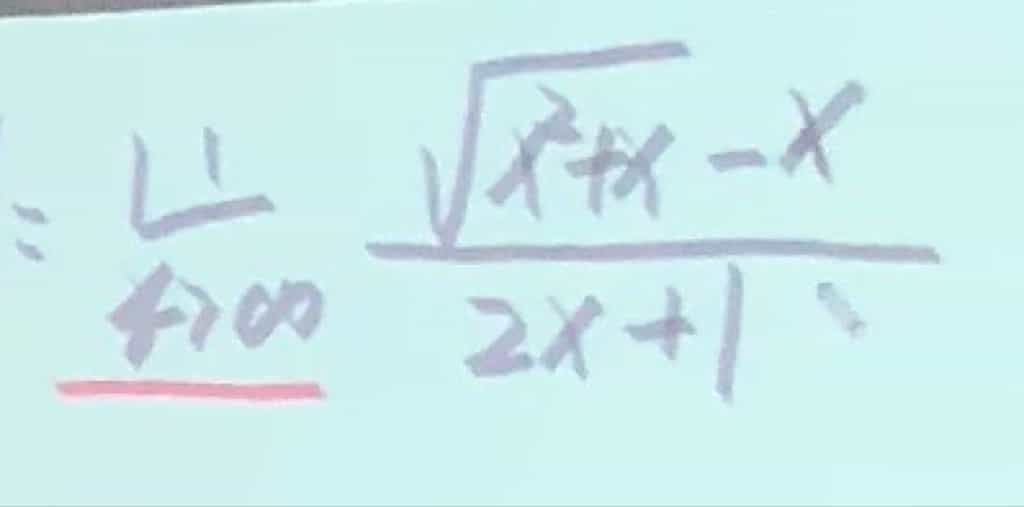 = Lt x→∞ (√(x²+x) - x)/(2x+1)